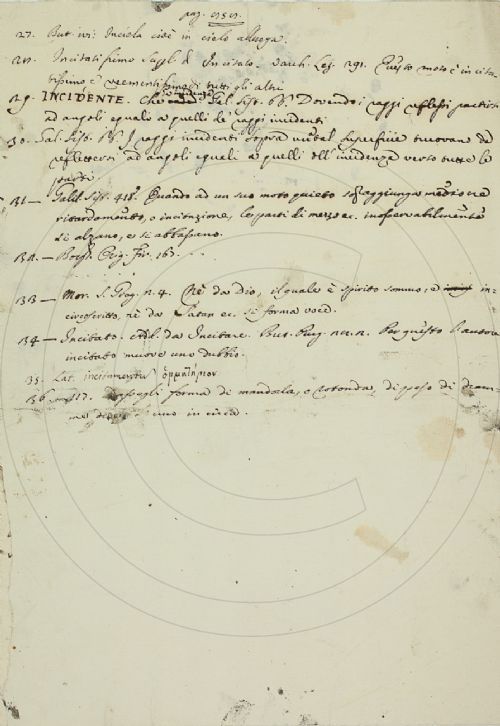 pag.
27. But. ivi: Inciela cioè in cielo alluoga.
Incitatissimo Suppl. d' Incitato. Varch. Lez. 291. Questo moto è incita-
tissimo e veementissimo di tutti gli altri
29. INCIDENTE. Gal. Sist. 66. Dovendo i raggi reflessi partirsi
ad angoli eguali a quelli de' raggi incidenti
30. Gal. Sist. I raggi incidenti sopra superficie
reflettersi ad angoli eguali a quelli dell' incidenza verso tutte le
parti.
31. — Galil. Sist. 418. Quando ad un suo moto quieto si aggiunga
ritardamento, o incitazione, le parti di mezzo ec. inosservabilmente
si alzano, e si abbassano.
32. — Borgh. Orig. Fir. 167. . . .
33 — Mor. S. Greg. n. 4. Nè da Dio, il quale è spirito sommo, e in-
circoscritto, nè da Satan ec. si forma voce.
34 — Incitato. Add. da Incitare. But. Purg. Per questo l'autore
incitato muove uno dubbio.
35. Lat. incitamentum ὁρμητήριον
36 117. forma di mandorla, e rotonda, di peso di dram-
in circa.